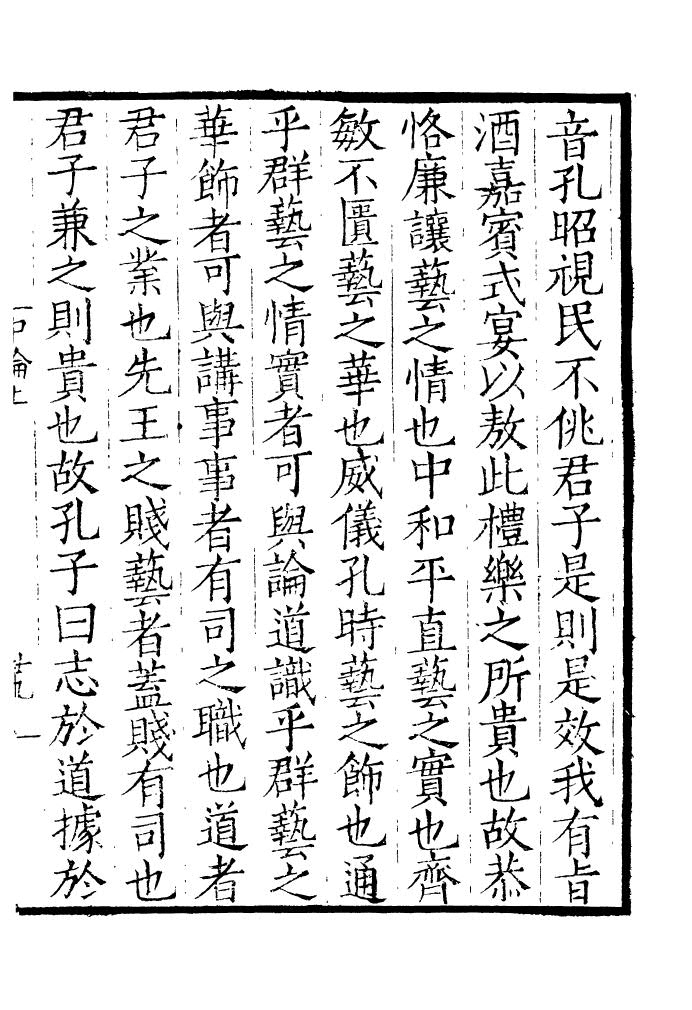 音孔昭視民不佻君子是則是效我有旨
酒嘉賓式宴以敖此禮樂之所貴也故恭
恪廉讓藝之情也中和平直藝之實也齊
敏不匱藝之華也威儀孔時藝之飾也通
乎群藝之情實者可與論道識乎群藝之
華飾者可與講事事者有司之職也道者
君子之業也先王之賤藝者蓋賤有司也
君子兼之則貴也故孔子曰志於道據於
論上